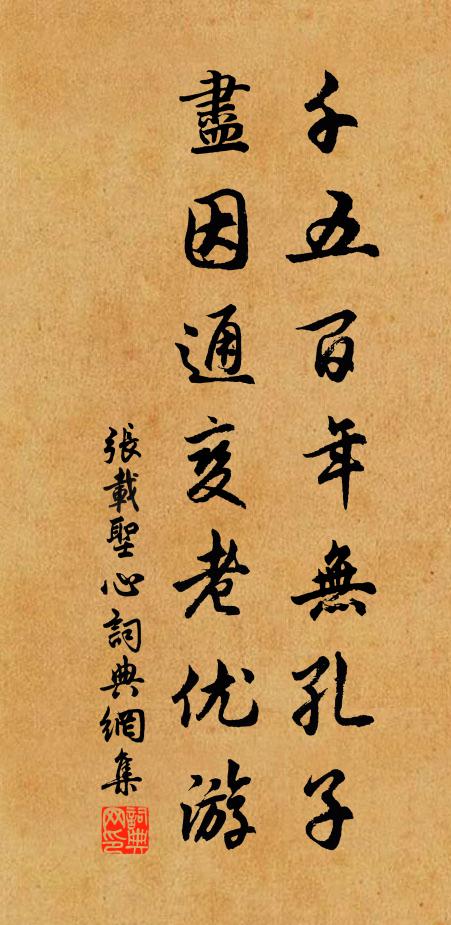 千五百年無孔子
盡因通变老优游
張載聖心詞典網集
詞典网印